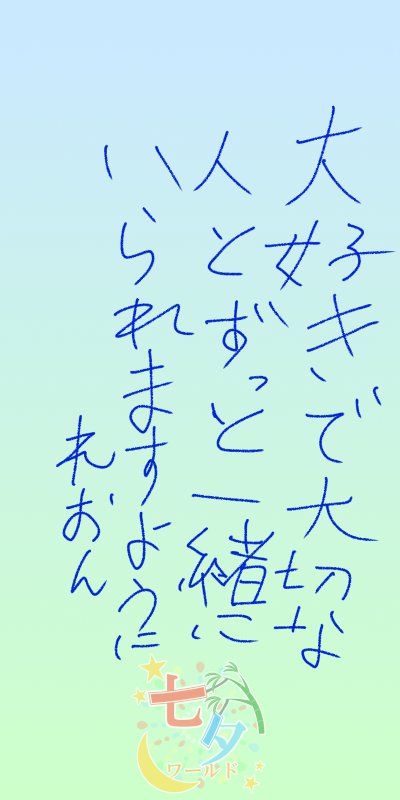 大好きで大切な
人とずっと一緒に
いられますように
れおん
七夕
ワールド